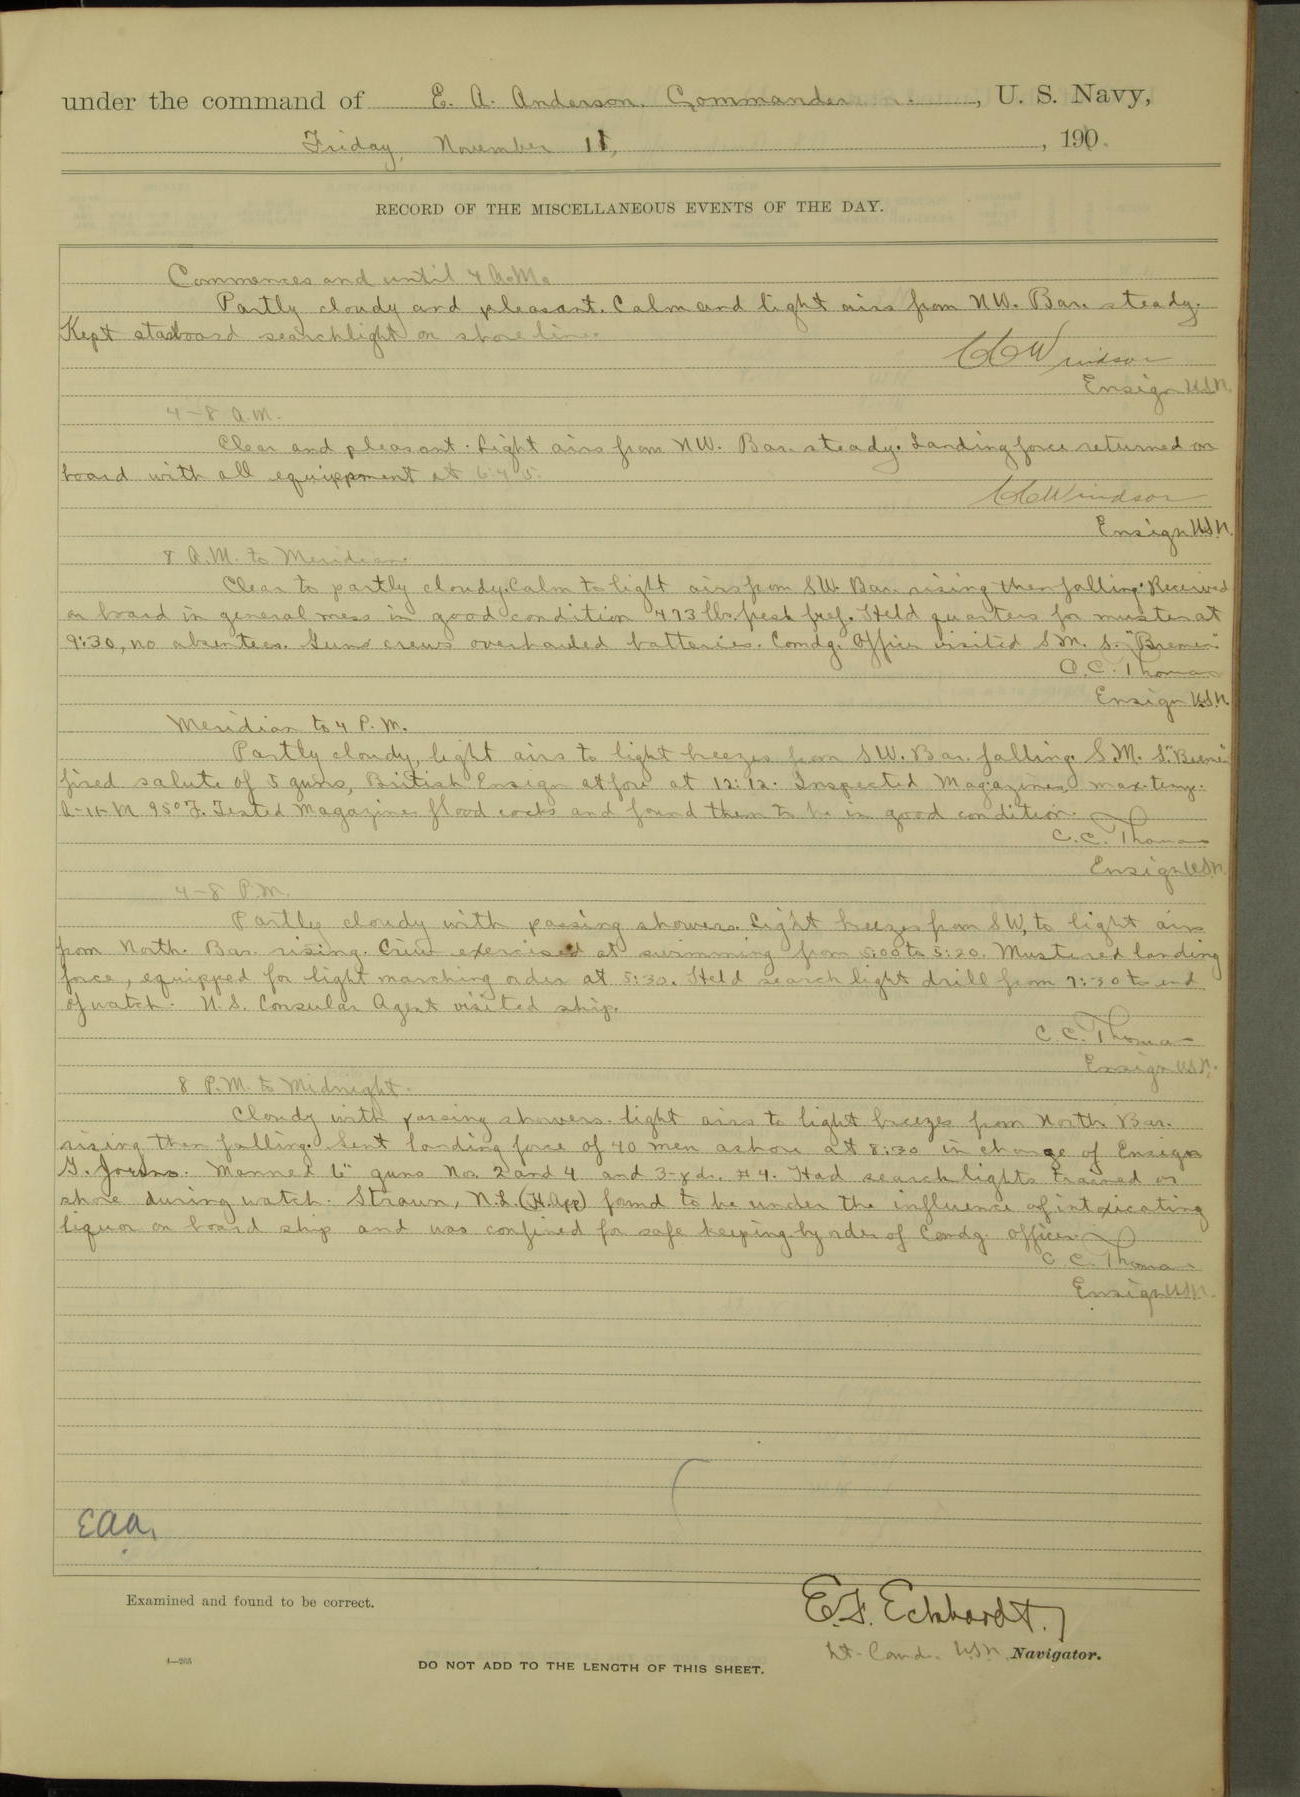 under the command of E. A. Anderson. Commander, U. S. Navy,
Friday, November 11, , 1910.
RECORD OF THE MISCELLANEOUS EVENTS OF THE DAY.
Commences and until 4 A.M.
Partly cloudy and pleasant. Calm and light airs from NW. Bar. steady.
Kept starboard searchlight on shore line.
CCWindsor
Ensign U.S.N.
4-8 A.M.
Clear and pleasant. Light airs from NW. Bar. steady. Landing force returned on
board with all equippment at 6:45.
CCWindsor
Ensign U.S.N.
8 A.M. to Meridian.
Clear to partly cloudy. Calm to light airs from SW. Bar. rising then falling. Received
on board in general mess in good condition 473 lbs. fresh beef. Held quarters for muster at
9:30, no absentees. Guns crews overhauled batteries. Comdg. Officer visited S.M.S. "Bremen"
C.C. Thomas
Ensign U.S.N.
Meridian to 4 P.M.
Partly cloudy, light airs to light breezes from SW. Bar. falling. S.M.S. "Bremen"
fired salute of 5 guns, British Ensign at fore at 12:12. Inspected Magazines, max. temp.
A-11-M 95° F. Tested Magazine flood cocks and found them to be in good condition.
C.C. Thomas
Ensign U.S.N.
4-8 P.M.
Partly cloudy with passing showers. Light breezes from SW, to light airs
from North. Bar. rising. Crew exercised at swimming from 5:00 to 5:20. Mustered landing
force, equipped for light marching order at 5:30. Held search light drill from 7:30 to end
of watch. U.S. Consular Agent visited ship.
C.C. Thomas
Ensign U.S.N.
8 P.M. to Midnight.
Cloudy with passing showers. light airs to light breezes from North. Bar.
rising then falling. Sent landing force of 40 men ashore at 8:30 in charge of Ensign
G. Joerns. Manned 6" guns Nos. 2 and 4 and 3-pdr. #4. Had searchlights trained on
shore during watch. Strawn, N.L. (H.App) found to be under the influence of intoxicating
liquor on board ship and was confined for safe keeping by order of Comdg. officer.
C.C. Thomas
Ensign U.S.N.
EAA.
Examined and found to be correct.
E.F. Eckhardt.
Lt-Comd. U.S.N. Navigator.
4—265
DO NOT ADD TO THE LENGTH OF THIS SHEET.